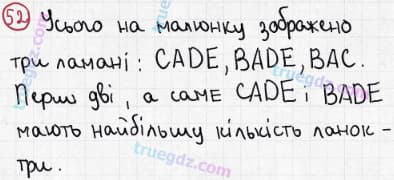 52 Усього на малюнку зображено
три ламані: CADE, BADE, BAC.
Перші дві, а саме CADE і BADE
мають найбільшу кількість ланок -
три.
truegdz.com
truegdz.com
truegdz.com
truegdz.com